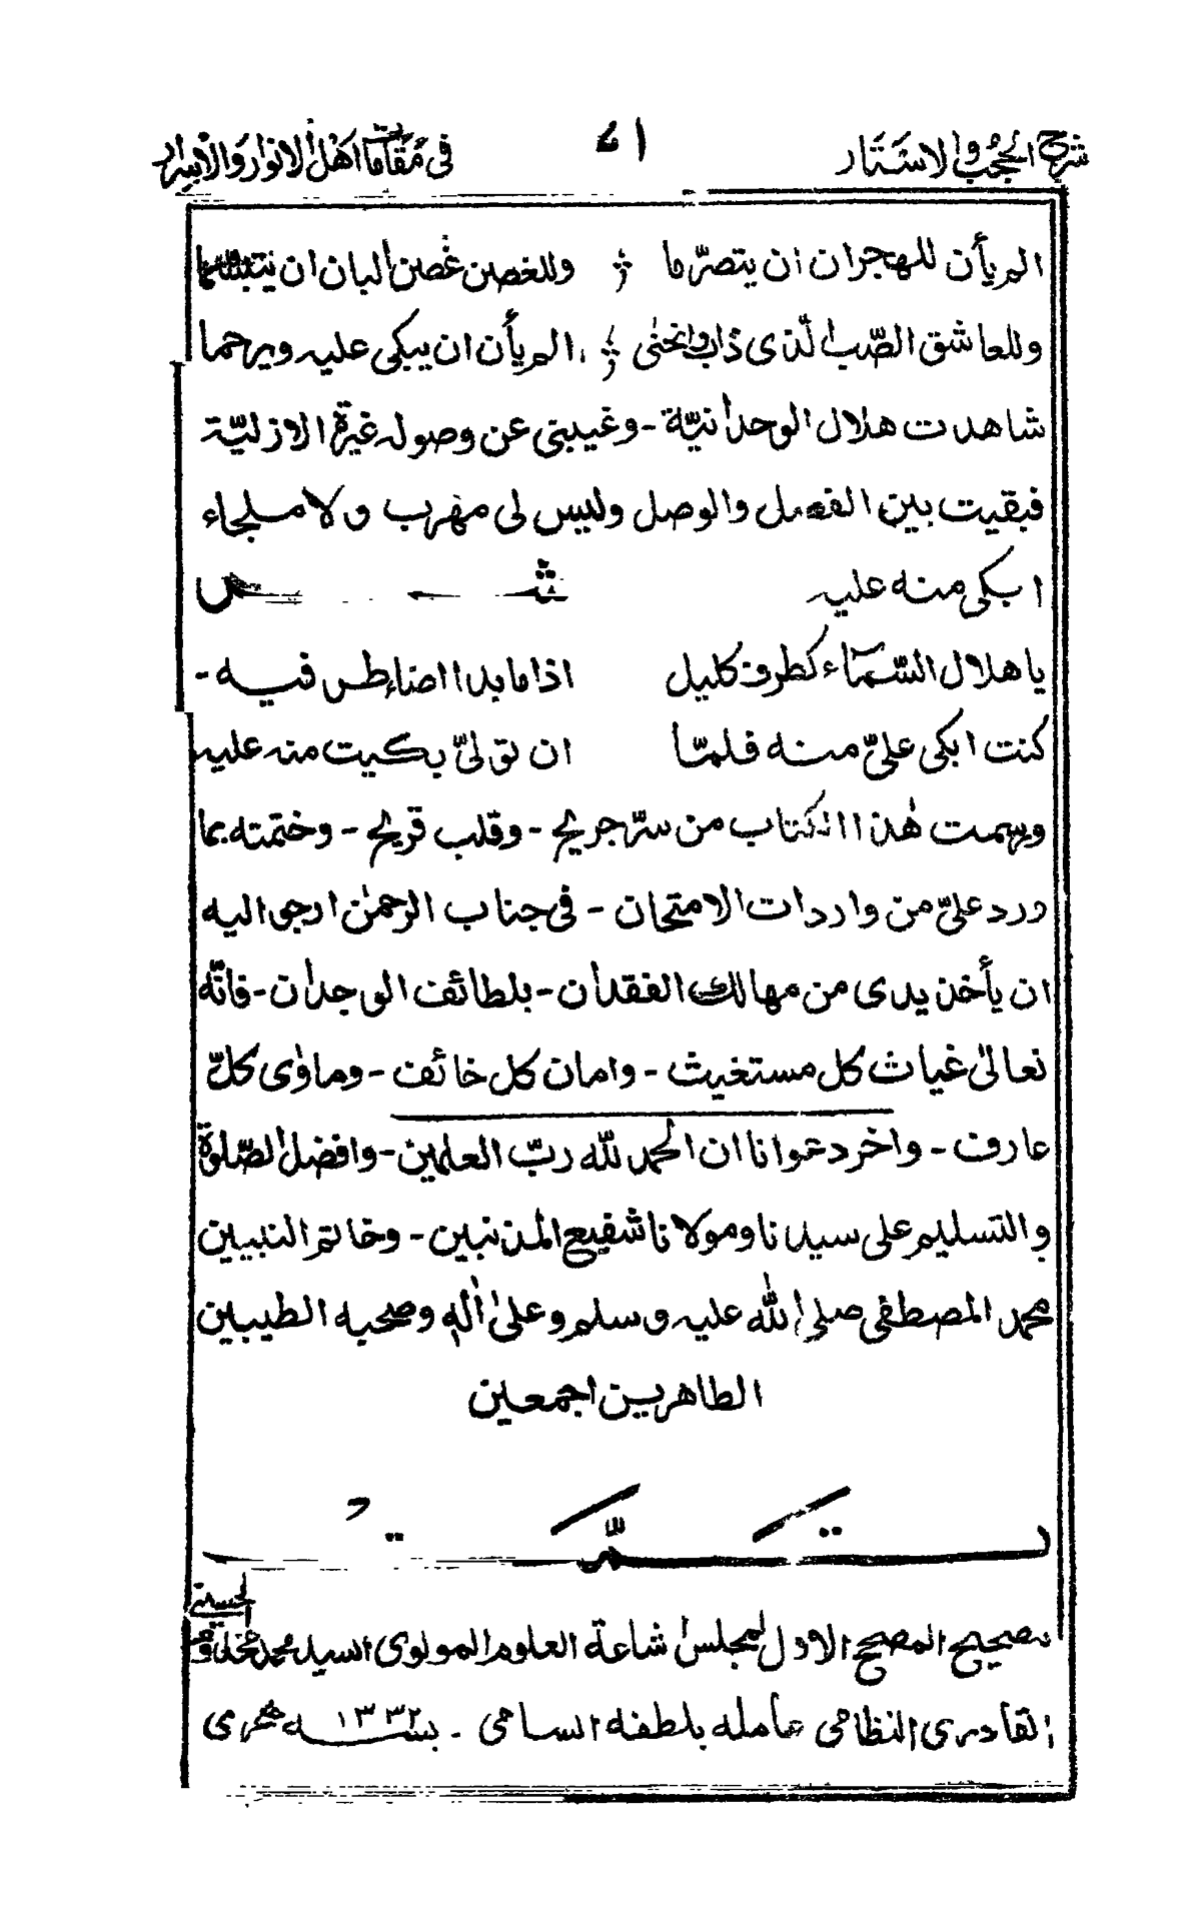 شرح الحجب والاستار
فى مقامات اهل الانوار والاسرار
الم يأن للهجران ان يتصرّما وللغصن غصن البان ان يتبسّما
وللعاشق الصّب الّذى ذاب وانحنٰى الم يأن ان يبكى عليه ويرحما
شاهدت هلال الوحدانيّة - وغيبنى عن وصوله غيرة الازليّة
فبقيت بين الفصل والوصل وليس لى مهرب ولا ملجاء
ابكى منه عليه شعر
يا هلال السّمآء كطرف كليل اذا ما بدا اضاء طس فيه -
كنت ابكى علىّ منه فلمّا ان تولىّ بكيت منه عليه
ورسمت هٰذا الكتاب من سرّ جريح - وقلب قريح - وختمته بما
ورد علىّ من واردات الامتحان - فى جناب الرحمٰن ارجو اليه
ان يأخذ يدى من مهالك الفقدان - بلطائف الوجدان - فانّه
تعالىٰ غياث كل مستغيث - وامان كل خائف - وماوٰى كلّ
عارف - واخر دعوانا ان الحمد لله ربّ العلمين - وافضل الصّلوٰة
والتسليم على سيدنا ومولانا شفيع المذنبين - وخاتم النبيين
محمد المصطفى صلى الله عليه وسلم وعلىٰ اٰله وصحبه الطيبين
الطاهرين اجمعين
تمت
تصحيح المصحح الاول لمجلس اشاعة العلوم المولوى السيد محمد مخدوم الحسينى
القادرى النظامى عامله بلطفه السامى - بسنه ١٣٣٢ هجرى